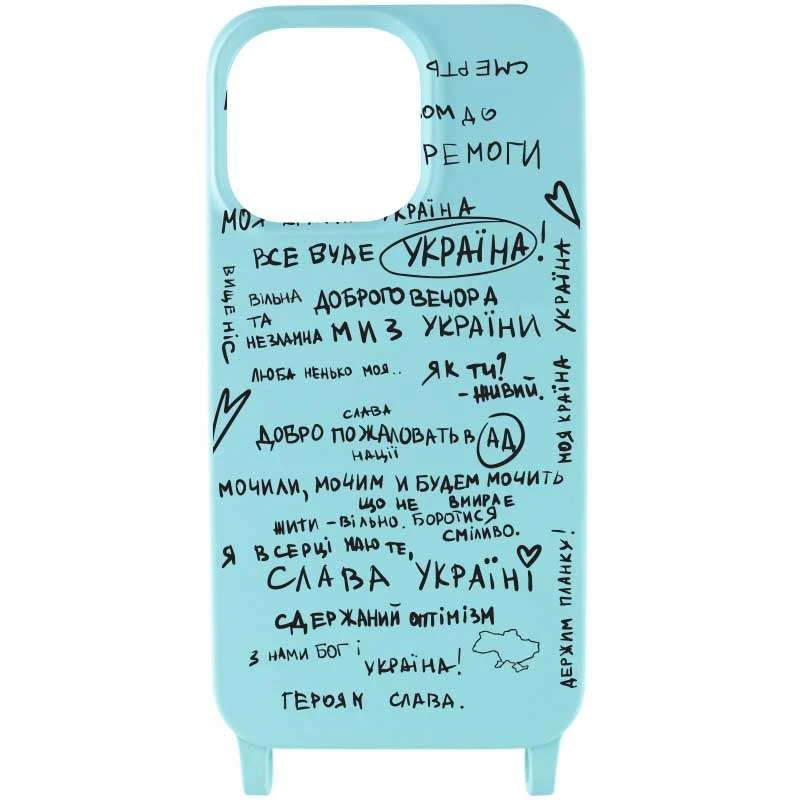 СМЕРТЬ
ОМ ДО
РЕМОГИ
МОЯ КРАЇНА
ВСЕ БУДЕ УКРАЇНА!
ВИЩЕ НІС
ВІЛЬНА
ТА
НЕЗЛАМНА
ДОБРОГО ВЕЧОРА
МИ З УКРАЇНИ
ЛЮБА НЕНЬКО МОЯ..
ЯК ТИ?
- ЖИВИЙ.
МОЯ КРАЇНА УКРАЇНА
СЛАВА
ДОБРО ПОЖАЛОВАТЬ В АД
НАЦІЇ
МОЧИЛИ, МОЧИМ И БУДЕМ МОЧИТЬ
ЩО НЕ ВМИРАЕ
ЖИТИ - ВІЛЬНО. БОРОТИСЯ
СМІЛИВО.
Я В СЕРЦІ МАЮ ТЕ,
СЛАВА УКРАЇНІ
СДЕРЖАНИЙ ОПТІМІЗМ
З НАМИ БОГ І
УКРАЇНА!
ДЕРЖИМ ПЛАНКУ!
ГЕРОЯМ СЛАВА.